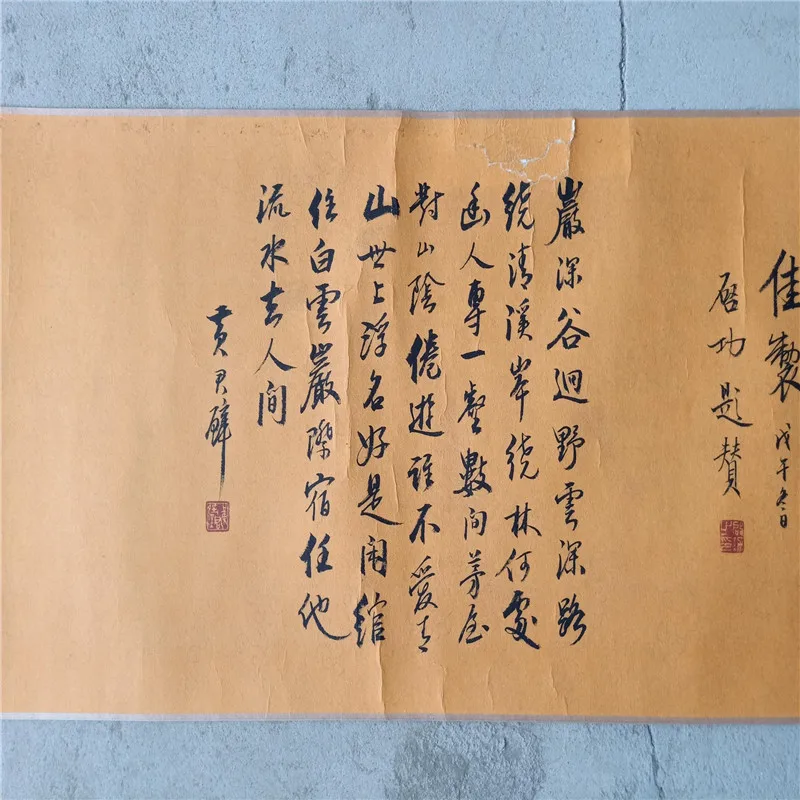 佳製
啓功題贊
戊午冬日
巖深谷迴野雲深路
繞清溪峯繞林何處
幽人專一壑數間茅屋
對山陰倦遊誰不愛青
山世上浮名好是閑綰
住白雲巖際宿任他
流水去人間
黃君璧